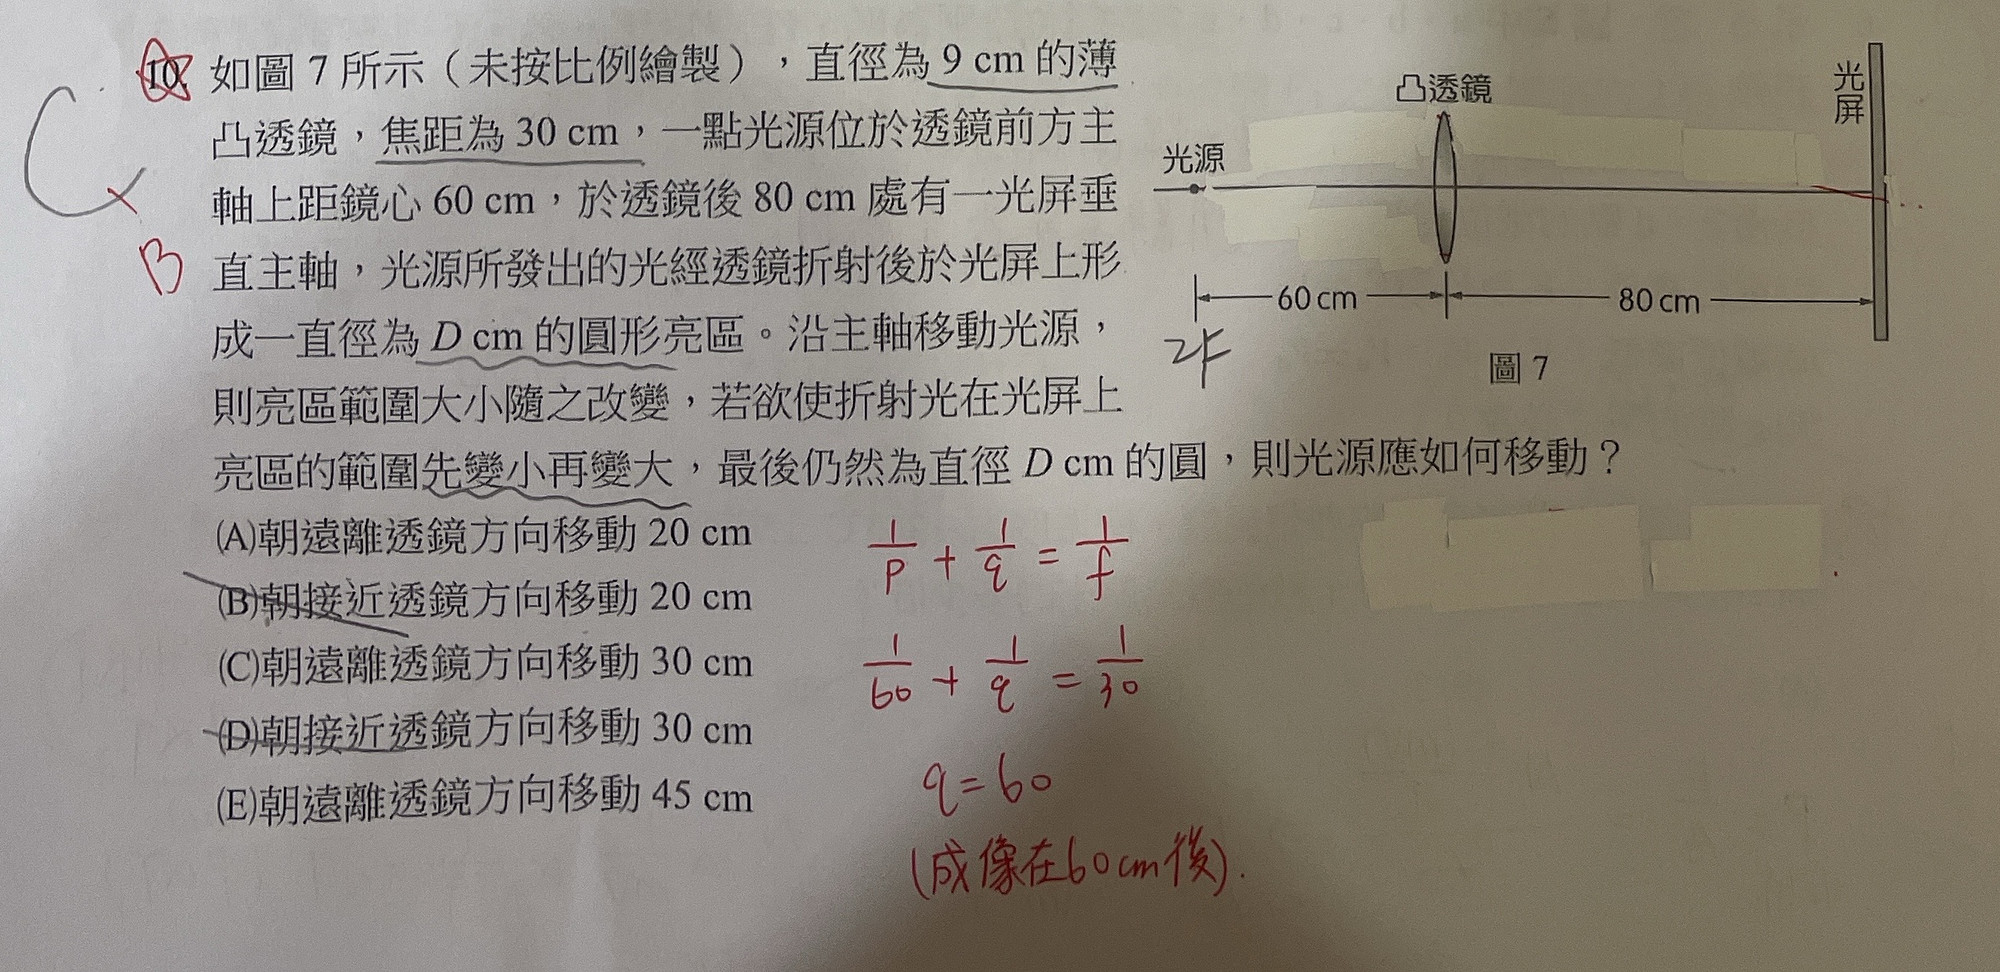 10. 如圖 7 所示（未按比例繪製），直徑為 9 cm 的薄
凸透鏡，焦距為 30 cm，一點光源位於透鏡前方主
軸上距鏡心 60 cm，於透鏡後 80 cm 處有一光屏垂
直主軸，光源所發出的光經透鏡折射後於光屏上形
成一直徑為 D cm 的圓形亮區。沿主軸移動光源，
則亮區範圍大小隨之改變，若欲使折射光在光屏上
亮區的範圍先變小再變大，最後仍然為直徑 D cm 的圓，則光源應如何移動？
(A)朝遠離透鏡方向移動 20 cm
(B)朝接近透鏡方向移動 20 cm
(C)朝遠離透鏡方向移動 30 cm
(D)朝接近透鏡方向移動 30 cm
(E)朝遠離透鏡方向移動 45 cm
C
B
光源
凸透鏡
光屏
60 cm
80 cm
2F
圖 7
1/p + 1/q = 1/f
1/60 + 1/q = 1/30
q = 60
(成像在60cm後).